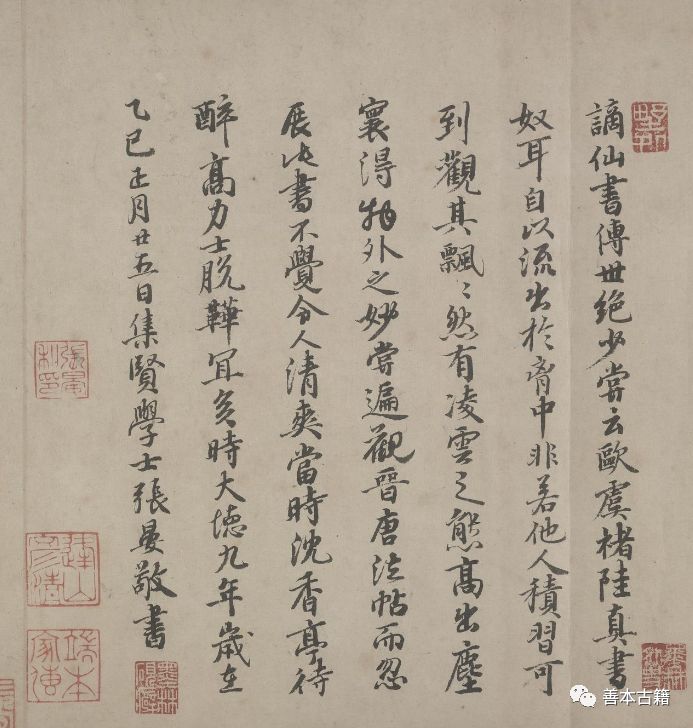 謫仙書傳世絕少嘗云歐虞褚陸真書
奴耳自以流出於胷中非若他人積習可
到觀其飄〻然有凌雲之態高出塵
寰得物外之妙嘗遍觀晉唐法帖而忽
展此書不覺令人清爽當時沈香亭待
醉高力士脫鞾冝矣時大德九年歲在
乙巳正月廿五日集賢學士張晏敬書
張晏
私印
端本
家傳
善本古籍